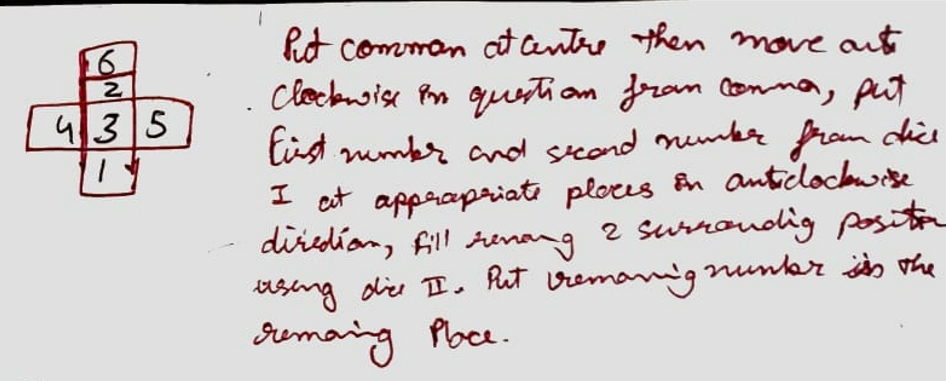 6
2
4 3 5
1
Put common at centre then move anti
Clockwise in question from common, put
first number and second number from dice
I at appropriate places in anticlockwise
direction, fill remang 2 surroundig position
using dice II. Put remaning number in the
remaing Place.